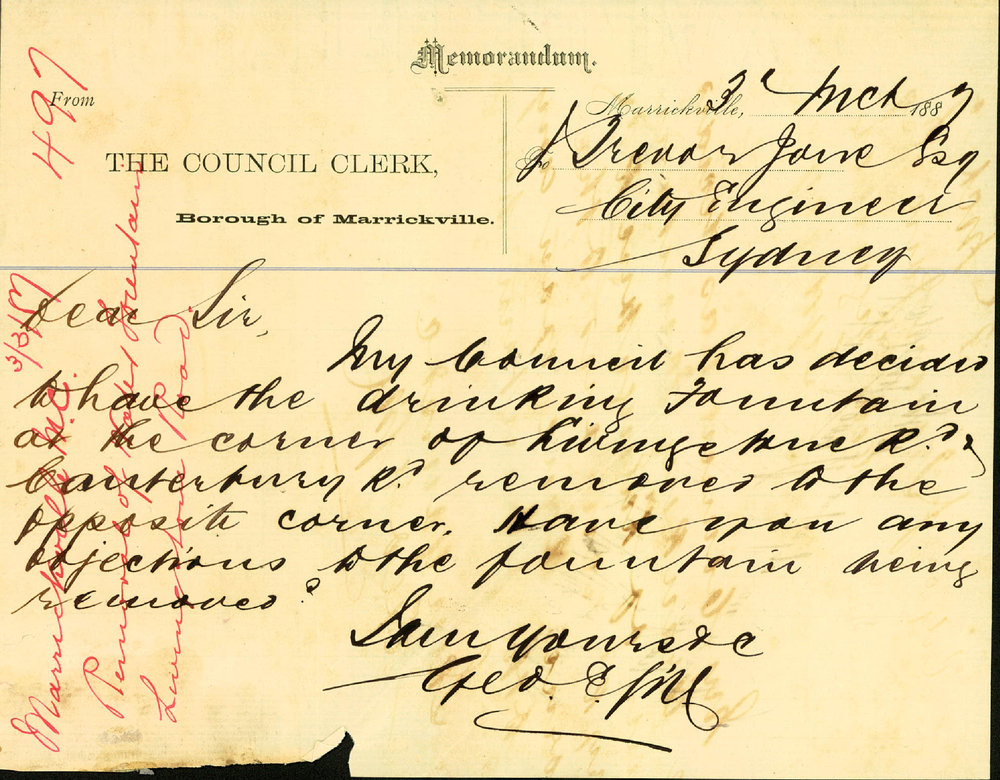 Memorandum.
From
THE COUNCIL CLERK,
Borough of Marrickville.
Marrickville, 3 Mch 1887
To Trevor Jones Esq
City Engineer
Sydney
Dear Sir,
My Council has decided
to have the drinking Fountain
at the corner of Livingstone Rd. &
Canterbury Rd. removed to the
opposite corner. Have you any
objections to the fountain being
removed?
I am Yours &c
Geo. E. Gill
497
Marrickville M.C. 3/3/87
Removal of Water Fountain
Livingstone Road